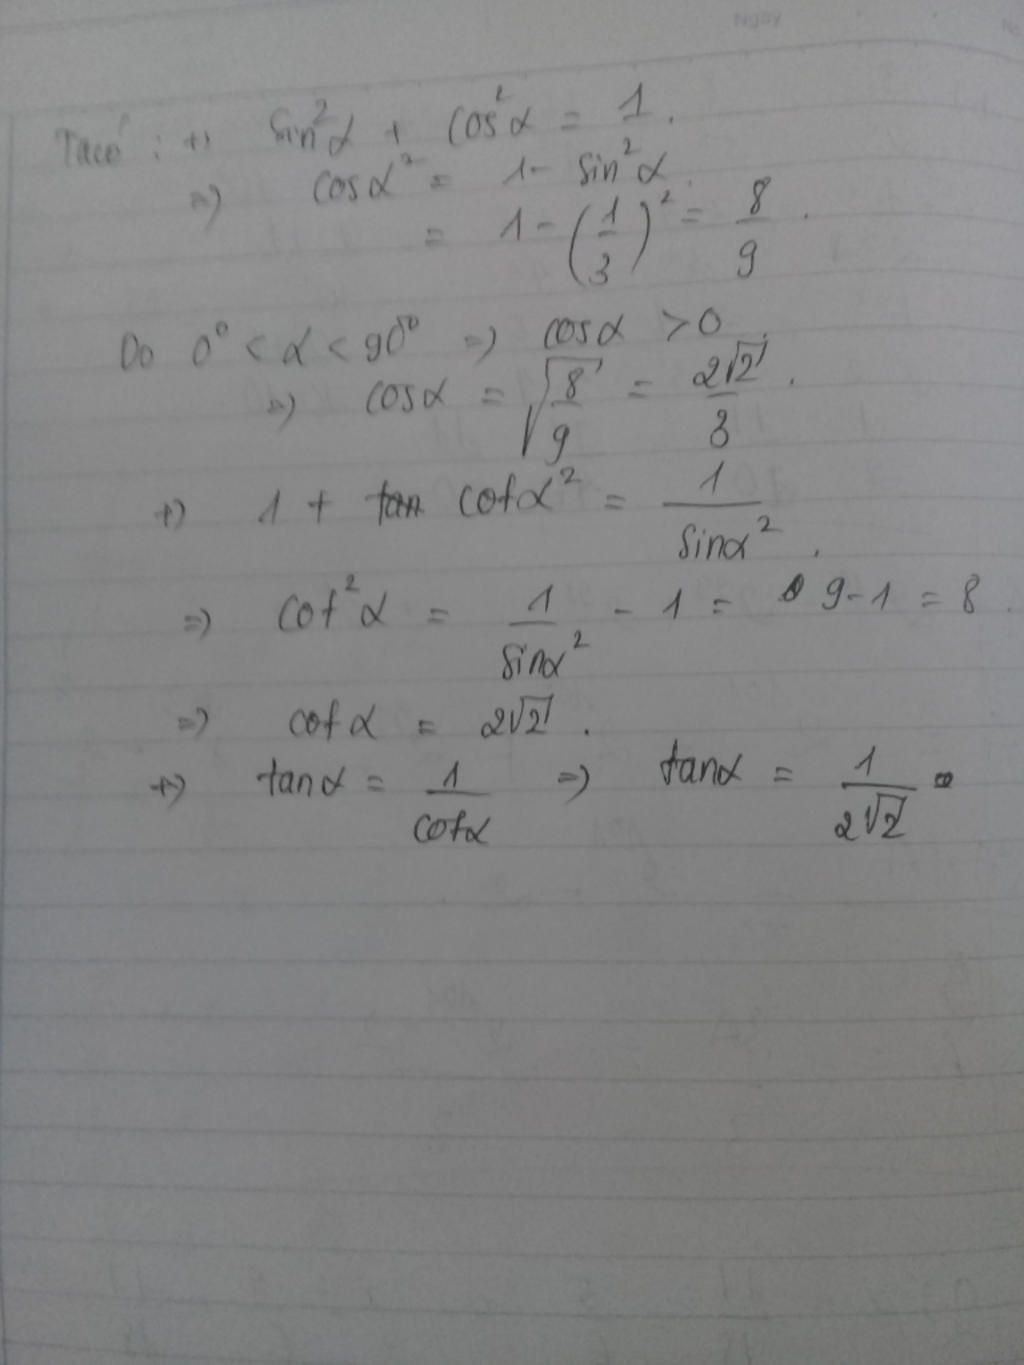 Ngày
No
Ta có : +) sin²α + cos²α = 1.
=) cosα² = 1 - sin²α.
= 1 - (1/3)² = 8/9.
Do 0° < α < 90° =) cosα > 0.
=) cosα = √(8/9) = 2√2/3.
+) 1 + cotα² = 1/sinα².
=) cot²α = 1/sinα² - 1 = 9-1 = 8.
=) cotα = 2√2.
+) tanα = 1/cotα =) tanα = 1/2√2